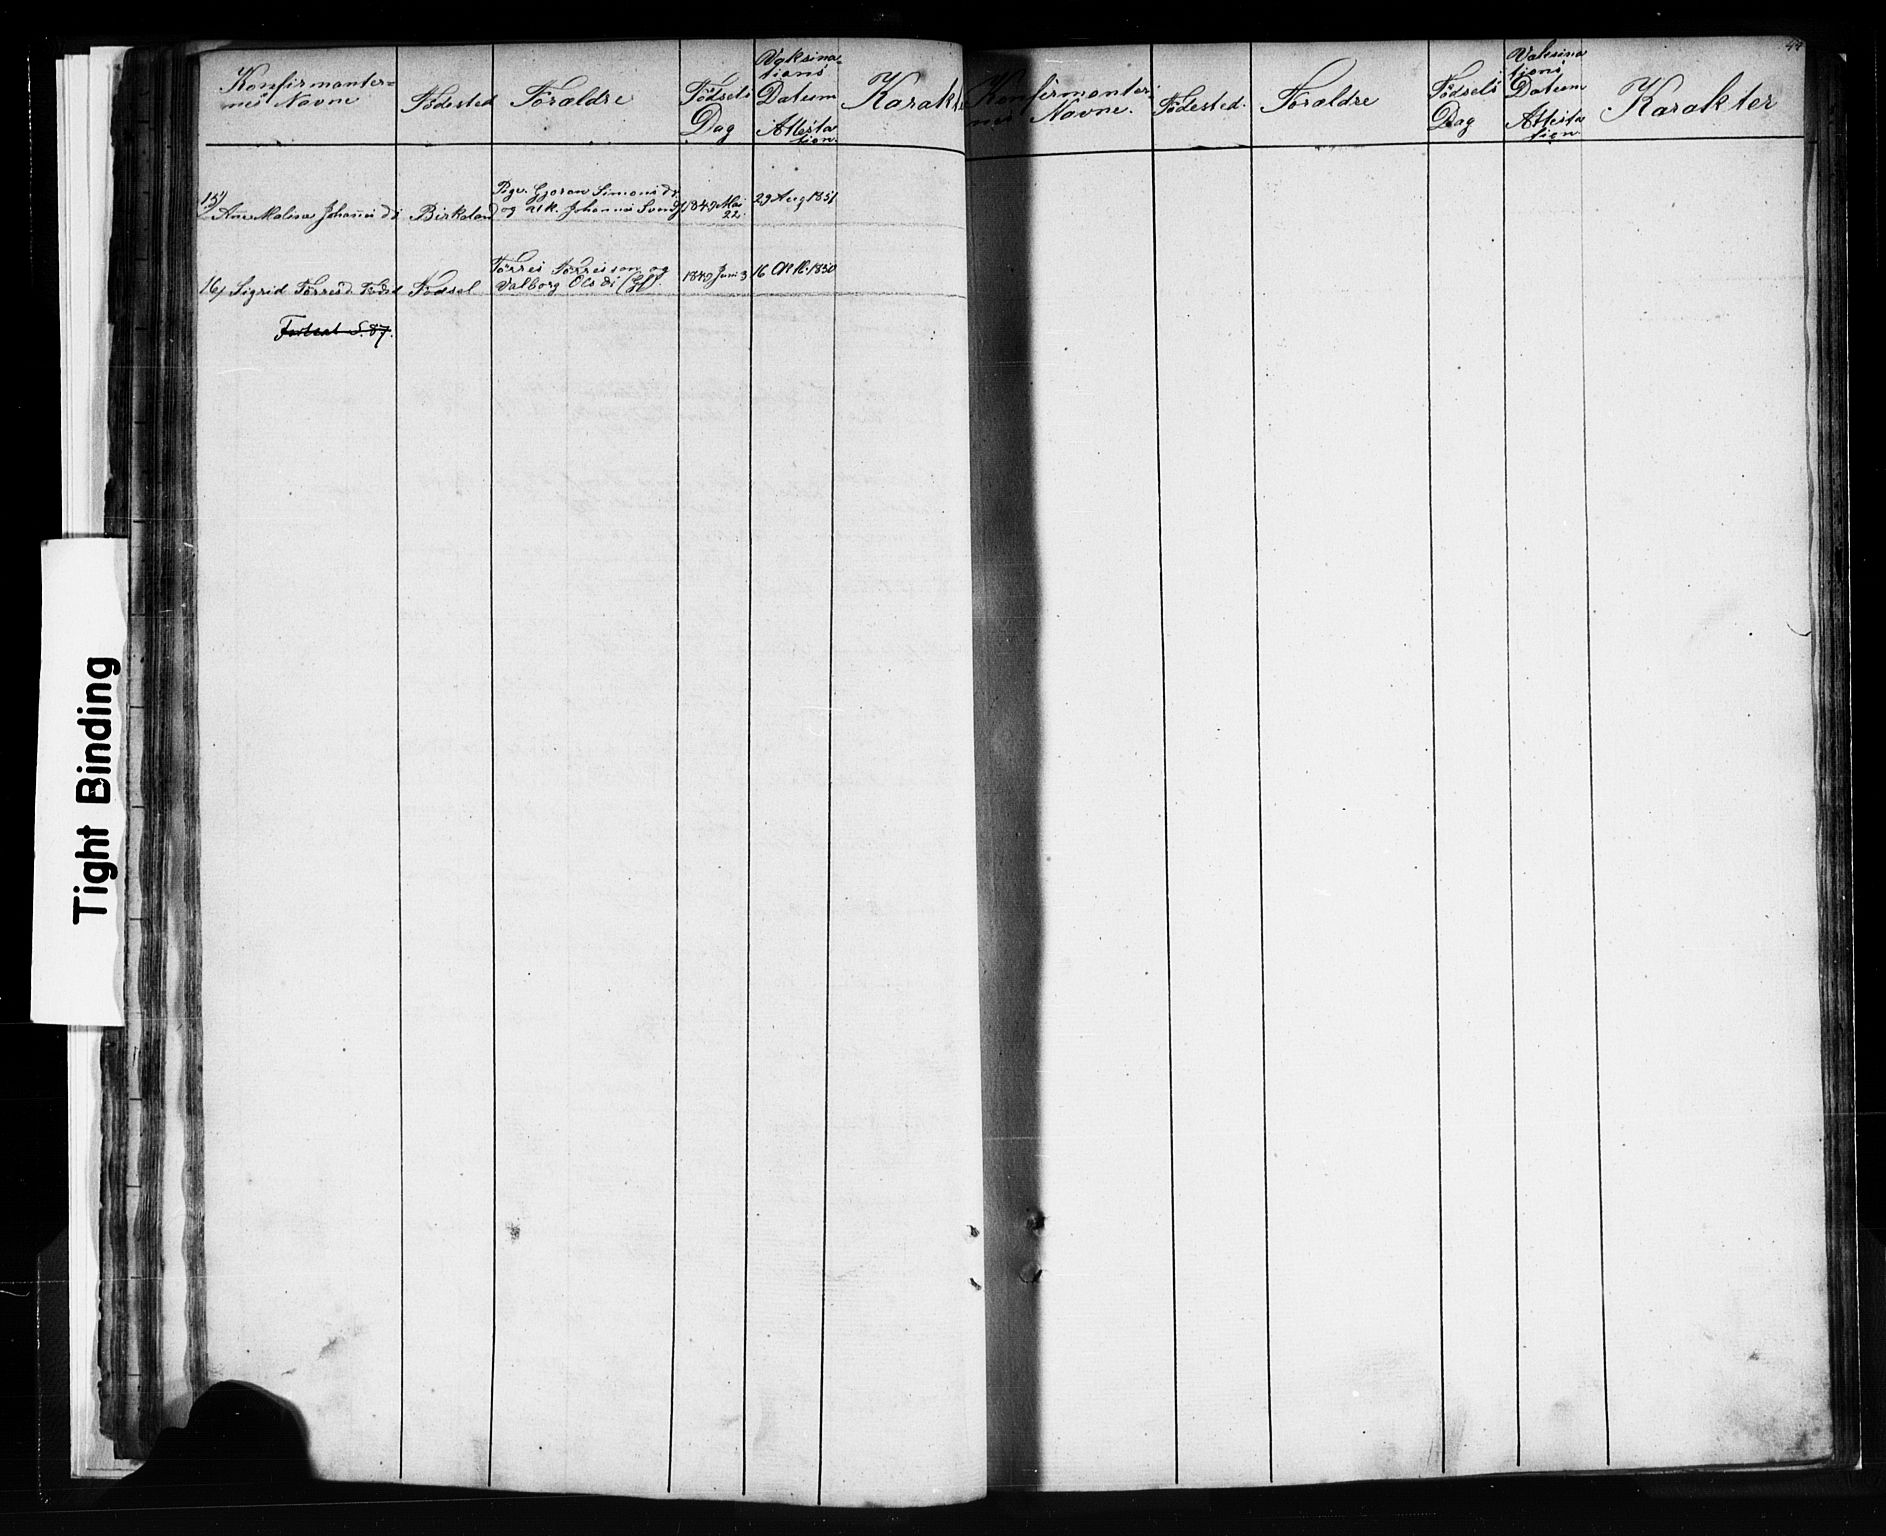 Konfirmanter=
nes Navne
Fødested
Foraldre
Fødsels
Dag
Vaksina=
tions
Datum
Attesta
tion
Karakte
15)
Ane Malina Johannesdr
Birkeland
Pige. Gjoran Simonsdr
og Uk. Johannes Svends
1849 Mai
22.
29 Aug 1851
16) Sigrid Tørresd. Fodsel
Fodsel
Tørres Tørresson og
Valborg Olsdr (Gf).
1849 Juni 3
16 Okt. 1850
Fortsat S. 87.
44
Konfirmanter=
nes Navne.
Fødested.
Foraldre
Fødsels
Dag
Vaksina
tions
Datum
Attesta
tion
Karakter
Tight Binding